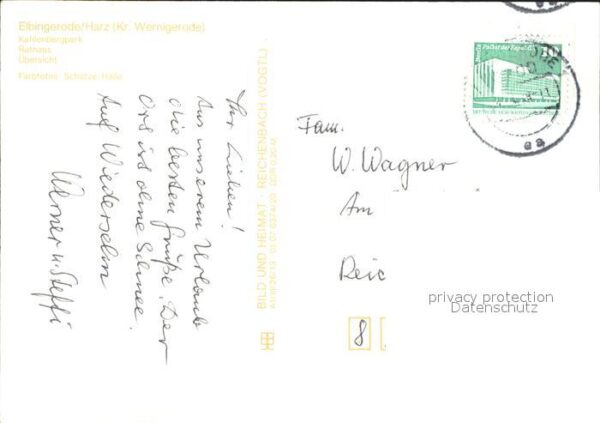 Elbingerode/Harz (Kr. Wernigerode)
Kahlenbergpark
Rathaus
Übersicht
Farbfotos: Schütze, Halle
Ihr Lieben!
Aus unserem Urlaub
die besten Grüße. Der
Ort ist ohne Schnee.
Auf Wiedersehn
Werner u. Steffi
BILD UND HEIMAT · REICHENBACH (VOGTL)
10
Palast der Republik
aa
Fam.
W. Wagner
Am
Reic
8
privacy protection
Datenschutz